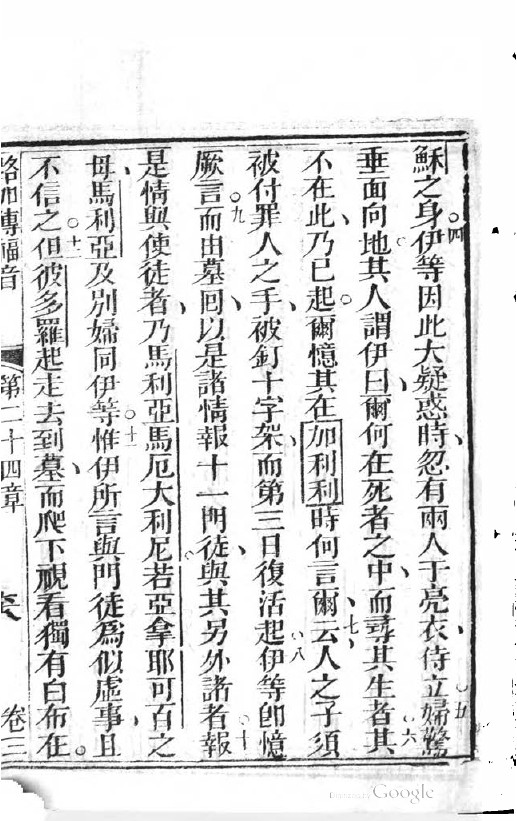 穌之身四伊等因此大疑惑時忽有兩人于亮衣侍立五婦驚
垂面向地其人謂伊曰爾何在死者之中而尋其生者六其
不在此乃已起爾憶其在加利利時何言爾七云人之子須
被付罪人之手被釘十字架而第三日復活起八伊等即憶
厥言九而由墓回以是諸情報十一門徒與其另外諸者十報
是情與使徒者乃馬利亞馬厄大利尼若亞拿耶可百之
母馬利亞及別婦同伊等十一惟伊所言與門徒為似虛事且
不信之十二但彼多羅起走去到墓而爬下視看獨有白布在
路加傳福音 第二十四章 卷三
Digitized by Google